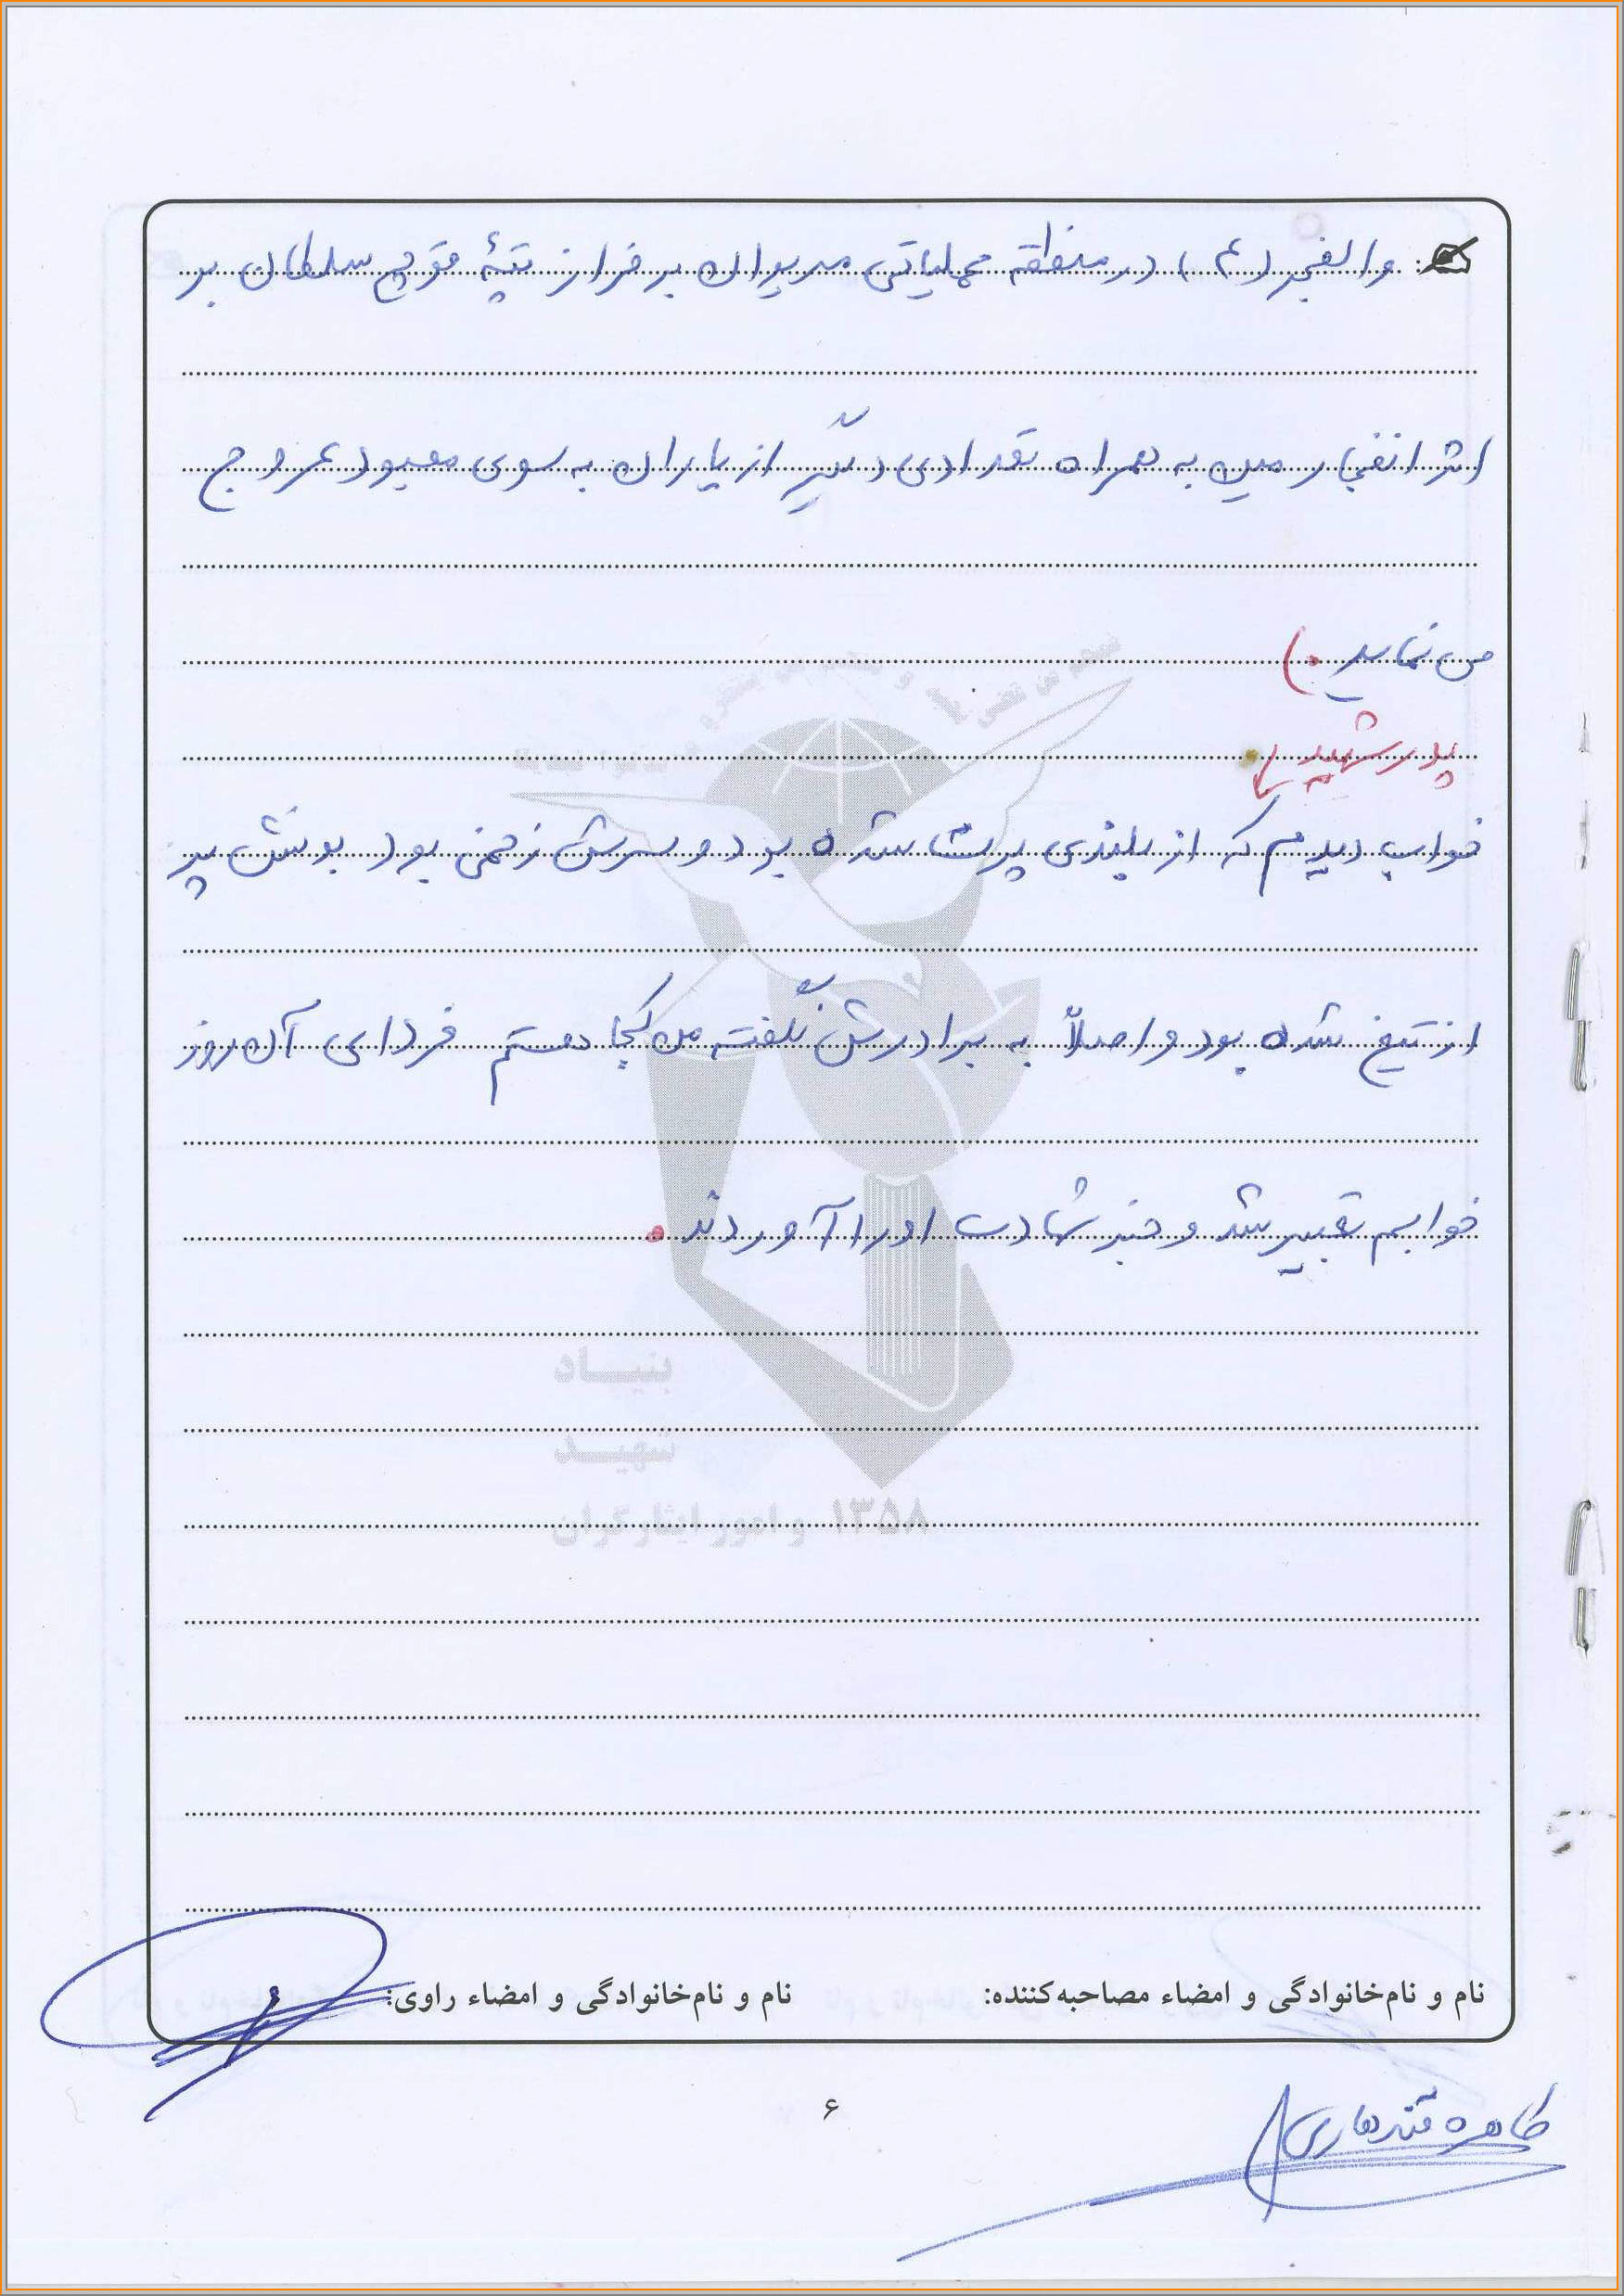 والفجر (۴) در منطقه عملیاتی مریوان بر فراز تپهٔ قوچ سلطان بر
اثر انفجار مین به همراه تعدادی دیگر از یاران به سوی معبود عروج
می نماید.)
پدر شهید:
خواب دیدم که از بلندی پرت شده بود و سرش زخمی بود بوتش پر
از تیغ شده بود و اصلاً به برادرش نگفته من کجا هستم فردای آن روز
خوابم تعبیر شد و خبر شهادت او را آوردند.
بنیاد
شهید
و امور ایثارگران ۱۳۵۸
نام و نام‌خانوادگی و امضاء مصاحبه‌کننده:
نام و نام‌خانوادگی و امضاء راوی:
۶
طاهره قندهاری